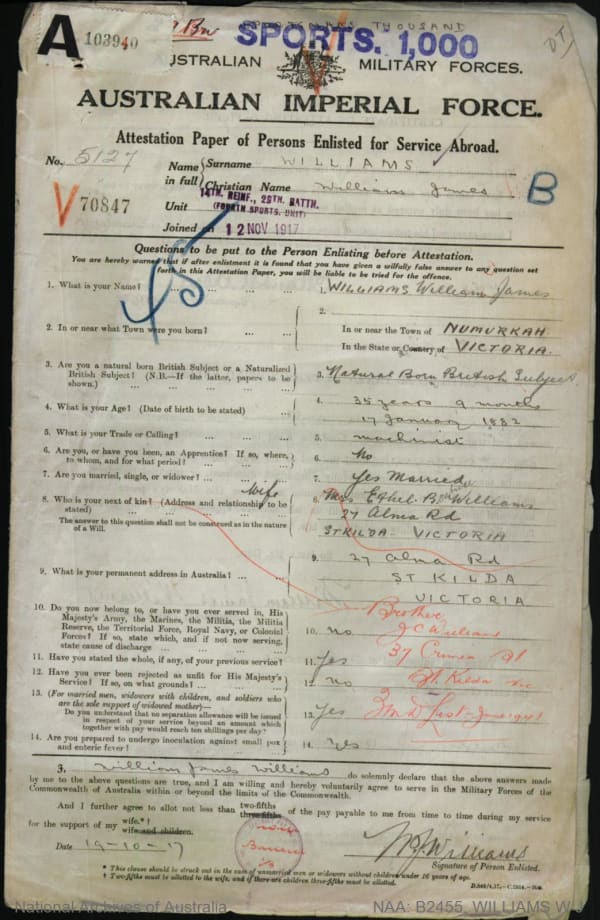 A 103940
SPORTS. 1,000
AUSTRALIAN MILITARY FORCES.
AUSTRALIAN IMPERIAL FORCE.
Attestation Paper of Persons Enlisted for Service Abroad.
No. 5127
Name in full { Surname WILLIAMS
Christian Name William James
B
V 70847
Unit 14TH. REINF., 29TH. BATTN.
(FOURTH SPORTS. UNIT)
Joined on 12 NOV 1917
Questions to be put to the Person Enlisting before Attestation.
You are hereby warned that if after enlistment it is found that you have given a wilfully false answer to any question set
forth in this Attestation Paper, you will be liable to be tried for the offence.
1. What is your Name? ... ... 1. WILLIAMS William James
2.
2. In or near what Town were you born? ... ... In or near the Town of NUMURKAH.
In the State or Country of VICTORIA.
3. Are you a natural born British Subject or a Naturalized
British Subject? (N.B.—If the latter, papers to be
shown.) ... ... 3. Natural Born British Subject
4. What is your Age? (Date of birth to be stated) ... 4. 35 years 9 months
17 January 1882
5. What is your Trade or Calling? ... ... 5. machinist
6. Are you, or have you been, an Apprentice? If so, where,
to whom, and for what period? ... ... 6. No
7. Are you married, single, or widower? ... 7. Yes Married
8. Who is your next of kin? (Address and relationship to be
stated) ... ... wife 8. Mrs Ethel B. Williams
27 Alma Rd
ST KILDA VICTORIA
The answer to this question shall not be construed as in the nature
of a Will.
9. What is your permanent address in Australia? ... 9. 27 Alma Rd
ST KILDA
VICTORIA
10. Do you now belong to, or have you ever served in, His
Majesty's Army, the Marines, the Militia, the Militia
Reserve, the Territorial Force, Royal Navy, or Colonial
Forces? If so, state which, and if not now serving,
state cause of discharge ... ... 10. no
Brother
J C Williams
37 Crimea St
St. Kilda Vic
11. Have you stated the whole, if any, of your previous service? 11. Yes
12. Have you ever been rejected as unfit for His Majesty's
Service? If so, on what grounds? ... ... 12. no
13. (For married men, widowers with children, and soldiers who
are the sole support of widowed mother)—
Do you understand that no separation allowance will be issued
in respect of your service beyond an amount which
together with pay would reach ten shillings per day? 13. Yes
14. Are you prepared to undergo inoculation against small pox
and enteric fever? 14. Yes
I, William James Williams do solemnly declare that the above answers made
by me to the above questions are true, and I am willing and hereby voluntarily agree to serve in the Military Forces of the
Commonwealth of Australia within or beyond the limits of the Commonwealth.
And I further agree to allot not less than two-fifths three-fifths of the pay payable to me from time to time during my service
for the support of my wife.*†
wife and children.
Date 19-10-17 W J Williams
Signature of Person Enlisted.
* This clause should be struck out in the case of unmarried men or widowers without children under 16 years of age.
† Two-fifths must be allotted to the wife, and if there are children three-fifths must be allotted.
National Archives of Australia NAA: B2455, WILLIAMS W J